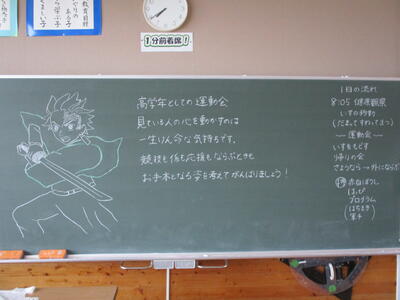 教育目標
1分前着席!
高学年としての運動会
見ている人の心を動かすのは
一生けん命な気持ちです。
競技も係も応援もならぶときも
お手本となる姿を考えてがんばりましょう!
1日の流れ
8:05 健康観察
いすの移動
(だまってすわってまつ)
~運動会~
いすをもどす
帰りの会
さようなら→外にならぶ
赤白ぼうし
はっぴ
プログラム
はちまき
軍手